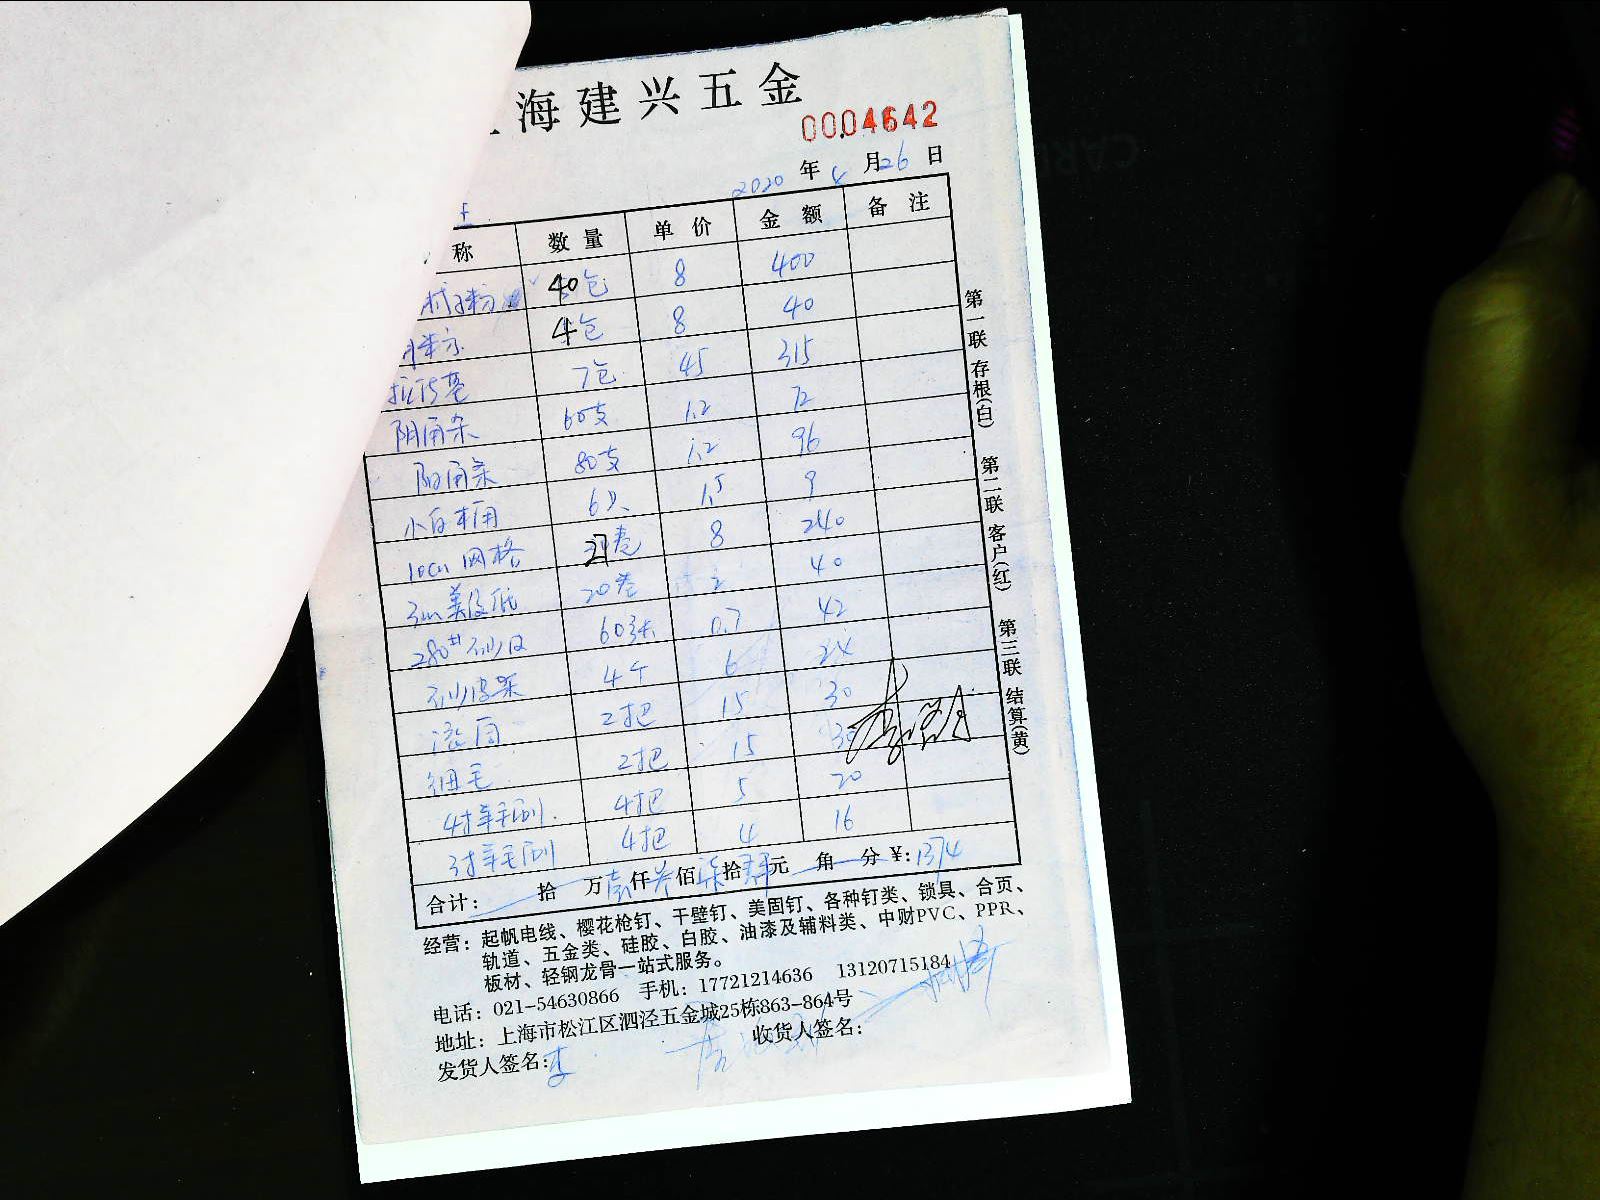 海建兴五金
0004642
2020年 月26日
称 数量 单价 金额 备注
40包 8 400
4包 8 40
7包 45 315
阴角条 60支 1.2 72
阳角条 80支 1.2 96
小白桶 6只 1.5 9
10cm网格 卷 8 240
3m美纹纸 20卷 2 40
280#砂皮 60张 0.7 42
砂皮架 4个 6 24
滚筒 2把 15 30
细毛 2把 15 30
4寸羊毛刷 4把 5 20
3寸羊毛刷 4把 4 16
合计: 拾 万壹仟叁佰柒拾肆元 角 分 ¥:1374
经营:起帆电线、樱花枪钉、干壁钉、美固钉、各种钉类、锁具、合页、
轨道、五金类、硅胶、白胶、油漆及辅料类、中财PVC、PPR、
板材、轻钢龙骨一站式服务。
电话:021-54630866 手机:17721214636 13120715184
地址:上海市松江区泗泾五金城25栋863-864号
发货人签名:李 收货人签名:
第一联 存根(白) 第二联 客户(红) 第三联 结算(黄)